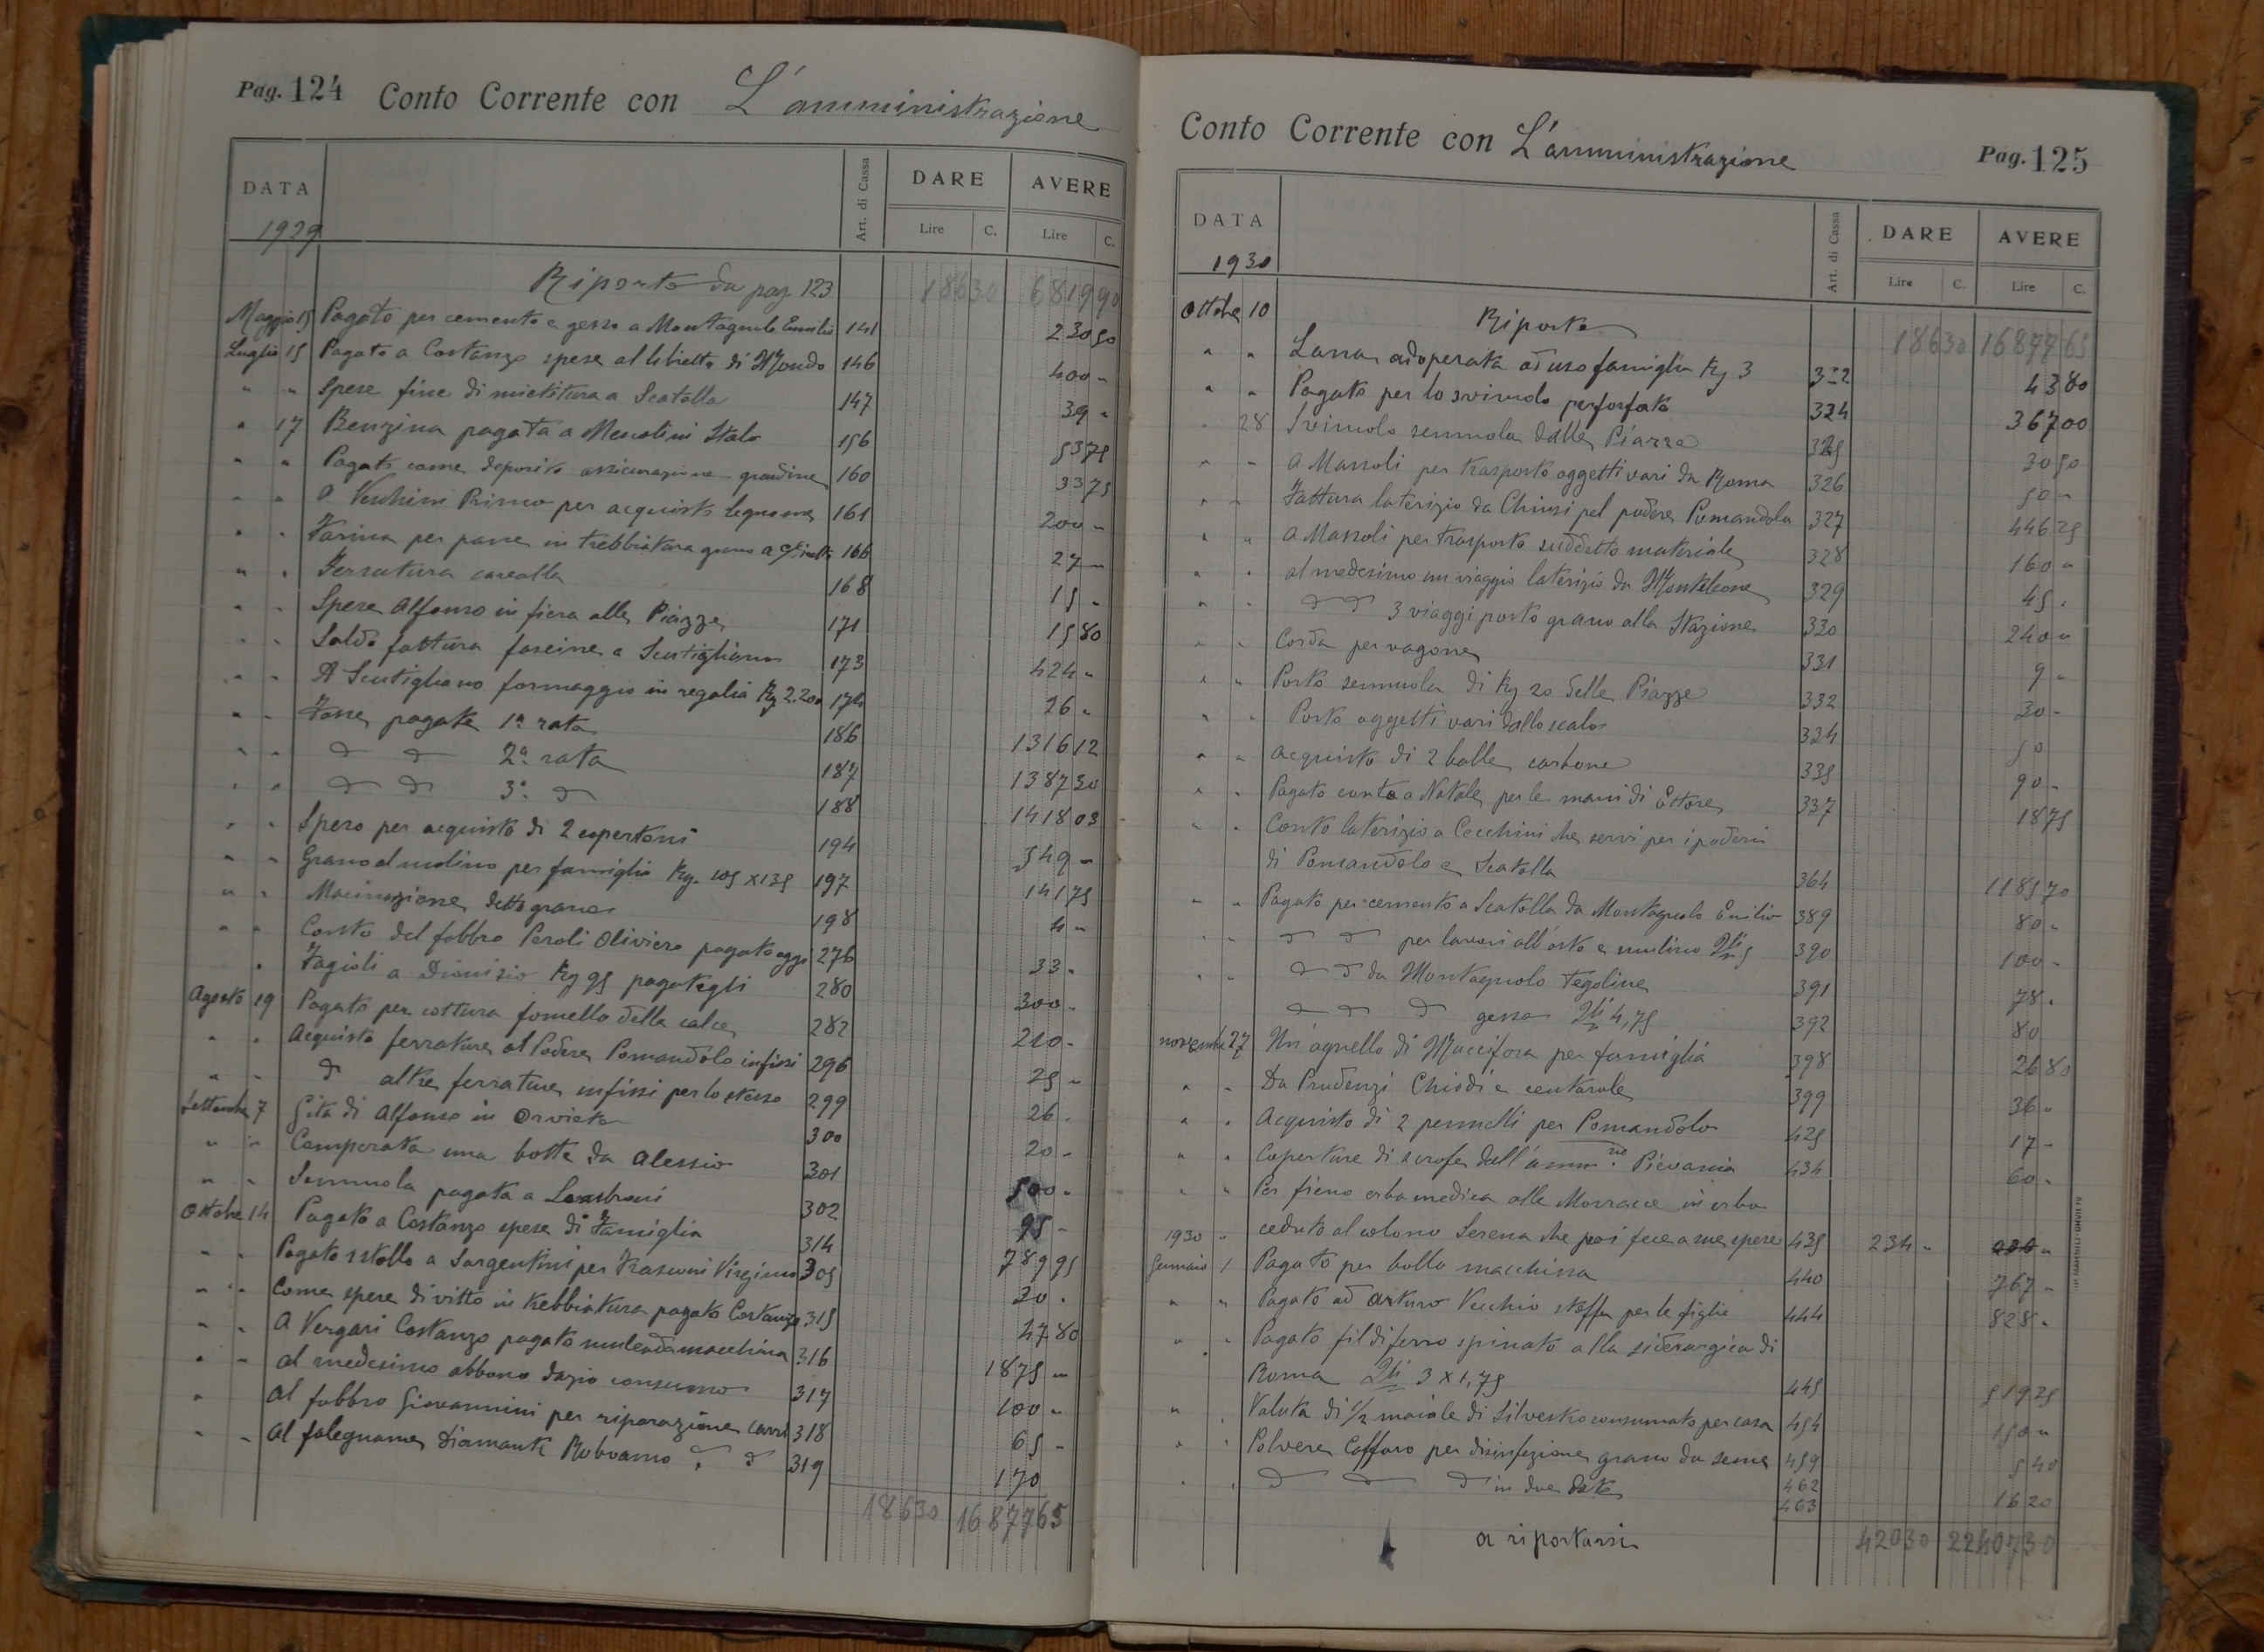 Pag. 124 Conto Corrente con L'amministrazione
DATA Art. di Cassa DARE AVERE
1929 Lire C. Lire C.
Riporto da pag. 123 186 30 6819 90
Maggio 15 Pagato per cemento e gesso a Montagnolo Emilio 141 230 50
Luglio 15 Pagato a Costanzo spese al libretto di Mondo 146 400 "
" " Spese fine di mietitura a Scatolla 147 39 "
" 17 Benzina pagata a Mencolini Italo 156 53 75
" " Pagato come deposito assicurazione grandine 160 33 75
" " A Vecchini Primo per acquisto legname 161 200 "
" " Farina per pane in trebbiatura grano a 166 27 "
" " Ferratura cavalla 168 15 "
" " Spese Alfonso in fiera alle Piazze 171 15 80
" " Saldo fattura fascine a Scutigliano 173 424 "
" " A Scutigliano formaggio in regalia Kg 2.200 174 26 "
" " Tasse pagate 1ª rata 186 1316 12
" " d d 2ª rata 187 1387 30
" " d d 3ª d 188 1418 03
" " Spero per acquisto di 2 copertoni 194 349 "
" " Grano al molino per famiglia Kg. 105 x 135 197 141 75
" " Macinazione detto grano 198 4 "
" " Conto del fabbro Peroli Oliviero pagato oggi 276 33 "
" Fagioli a Dionisio Kg 95 pagategli 280 300 "
Agosto 19 Pagato per cottura fornello della calce 282 210 "
" " Acquisto ferrature al Podere Pomandolo infissi 296 25 "
" " d altre ferrature infissi per lo stesso 299 26 "
Settembre 7 Gita di Alfonso in Orvieto 300 20 "
" " Comperata una botte da Alessio 301 500 "
" " Semmola pagata a 302 95 "
Ottobre 14 Pagato a Costanzo spese di Famiglia 314 789 95
" " Pagato stollo a Sargentini per Trasconi Virginio 305 30 "
" " Come spese di vitto in trebbiatura pagato Costanzo 315 47 80
" " A Vergari Costanzo pagato macchina 316 1875 "
" " Al medesimo abbono dazio consumo 317 100 "
" Al fabbro Giovannini per riparazione carri 318 65 "
" " Al falegname Diamanti Roboamo d d 319 170
186 30 16877 65
Conto Corrente con L'amministrazione Pag. 125
DATA Art. di Cassa DARE AVERE
1930 Lire C. Lire C.
Ottobre 10 Riporto 186 30 16877 65
" " Lana adoperata ad uso famiglia Kg 3 322 43 80
" " Pagato per lo svincolo perfosfato 324 367 00
" 28 Svincolo semmola dalle Piazze 325 30 50
" " A Massoli per trasporto oggetti vari da Roma 326 50 "
" " Fattura laterizio da Chiusi pel podere Pomandolo 327 446 25
" " A Massoli per trasporto suddetto materiale 328 160 "
" " al medesimo un viaggio laterizio da Monteleone 329 45 "
" " d d 3 viaggi porto grano alla Stazione 330 240 "
" " Corda per vagone 331 9 "
" " Porto semmola di Kg 20 delle Piazze 332 30 "
" " Porto oggetti vari dallo scalo 334 50
" " Acquisto di 2 balle carbone 335 90 "
" " Pagato conto a Natale per le mani di Ettore 337 18 75
" " Conto laterizio a Cecchini che servì per i poderi
di Pomandolo e Scatolla 364 1185 70
" " Pagato per cemento a Scatolla da Montagnolo Emilio 389 80 "
" " d d per lavori all'orto e mulino Qli 5 390 100 "
" " d d da Montagnolo Tegoline 391 78 "
d d d gesso Qli 4,75 392 80
novembre 27 Un'agnello di Maccifora per famiglia 398 26 80
" " Da Prudenzi Chiodi e centarole 399 36 "
" " Acquisto di 2 pennelli per Pomandolo 425 17 "
" " Coperture di scrofe dall'ammne Pievania 434 60 "
" " Per fieno erba medica alle Morracce in erba
1930 " ceduto al colono Serena che poi fece a sue spese 435 234 "
Gennaio 1 Pagato per bollo macchina 440 767 "
" " Pagato ad Arturo Vecchio stoffa per le figlie 444 828 "
" " Pagato fil di ferro spinato alla siderurgica di
Roma Qli 3 x 1,75 445 519 25
" " Valuta di 1/2 maiale di Silvestro consumato per casa 454 150 "
" " Polvere Caffaro per disinfezione grano da seme 459 5 40
" " d d d in due date 462 16 20
463
a riportarsi 420 30 22407 30